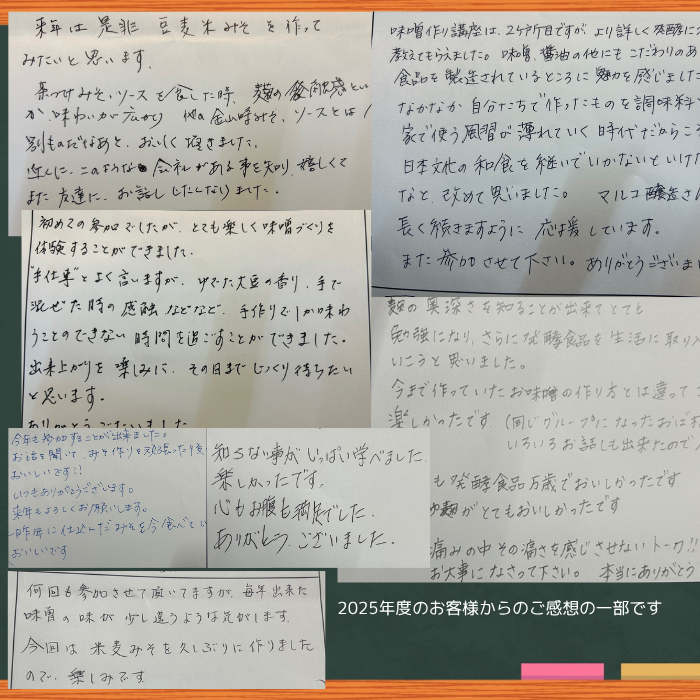 来年は是非 豆麦米みそを作って
みたいと思います。
みそ、ソースを食した時、麹の
が味わいが広がり 他の金山時みそ、ソースとは
別ものだなあと、おいしく頂きました。
近くに、このような会社がある事を知り、嬉しくて
また友達に、お話ししたくなりました。
初めての参加でしたが、とても楽しく味噌づくりを
体験することができました。
"手仕事"とよく言いますが、ゆでた大豆の香り、手で
混ぜた時の感触などなど、手作りでしか味わ
うことのできない時間を過ごすことができました。
出来上がりを楽しみに、その日までじっくり待ちたい
と思います。
ありがとうございました
今年も参加することが出来ました。
お話を聞いて、みそ作りを頑張ったり
おいしいです!!
いつもありがとうございます。
来年もよろしくお願いします。
昨年に仕込んだみそを今食べてい
おいしいです
知らない事がいっぱい学べました。
楽しかったです。
心もお腹も満足でした。
ありがとうございました。
何回も参加させて頂いてますが、毎年出来た
味噌の味が少し違うような気がします。
今回は米麦みそを久しぶりに作りました
ので、楽しみです
味噌作り講座は、2ヶ所目ですが、より詳しく発酵に
教えてもらえました。味噌、醤油の他にもこだわりのあ
食品を製造されているところに魅力を感じました
なかなか自分たちで作ったものを調味料
家で使う風習が薄れていく時代だからこそ
日本文化の和食を継いでいかないといけ
なと、改めて思いました。 マルコ醸造さん
長く続きますように 応援しています。
また参加させて下さい。ありがとうございま
麹の奥深さを知ることが出来てとても
勉強になり、さらに発酵食品を生活に取り入
いこうと思いました。
今まで作っていたお味噌の作り方とは違って
楽しかったです。(同じグループになったおば
いろいろお話しも出来たので
も発酵食品万歳でおいしかったです
麹がとてもおいしかったです
痛みの中その痛さを感じさせないトーク!!
お大事になさって下さい。 本当にありがとう
2025年度のお客様からのご感想の一部です